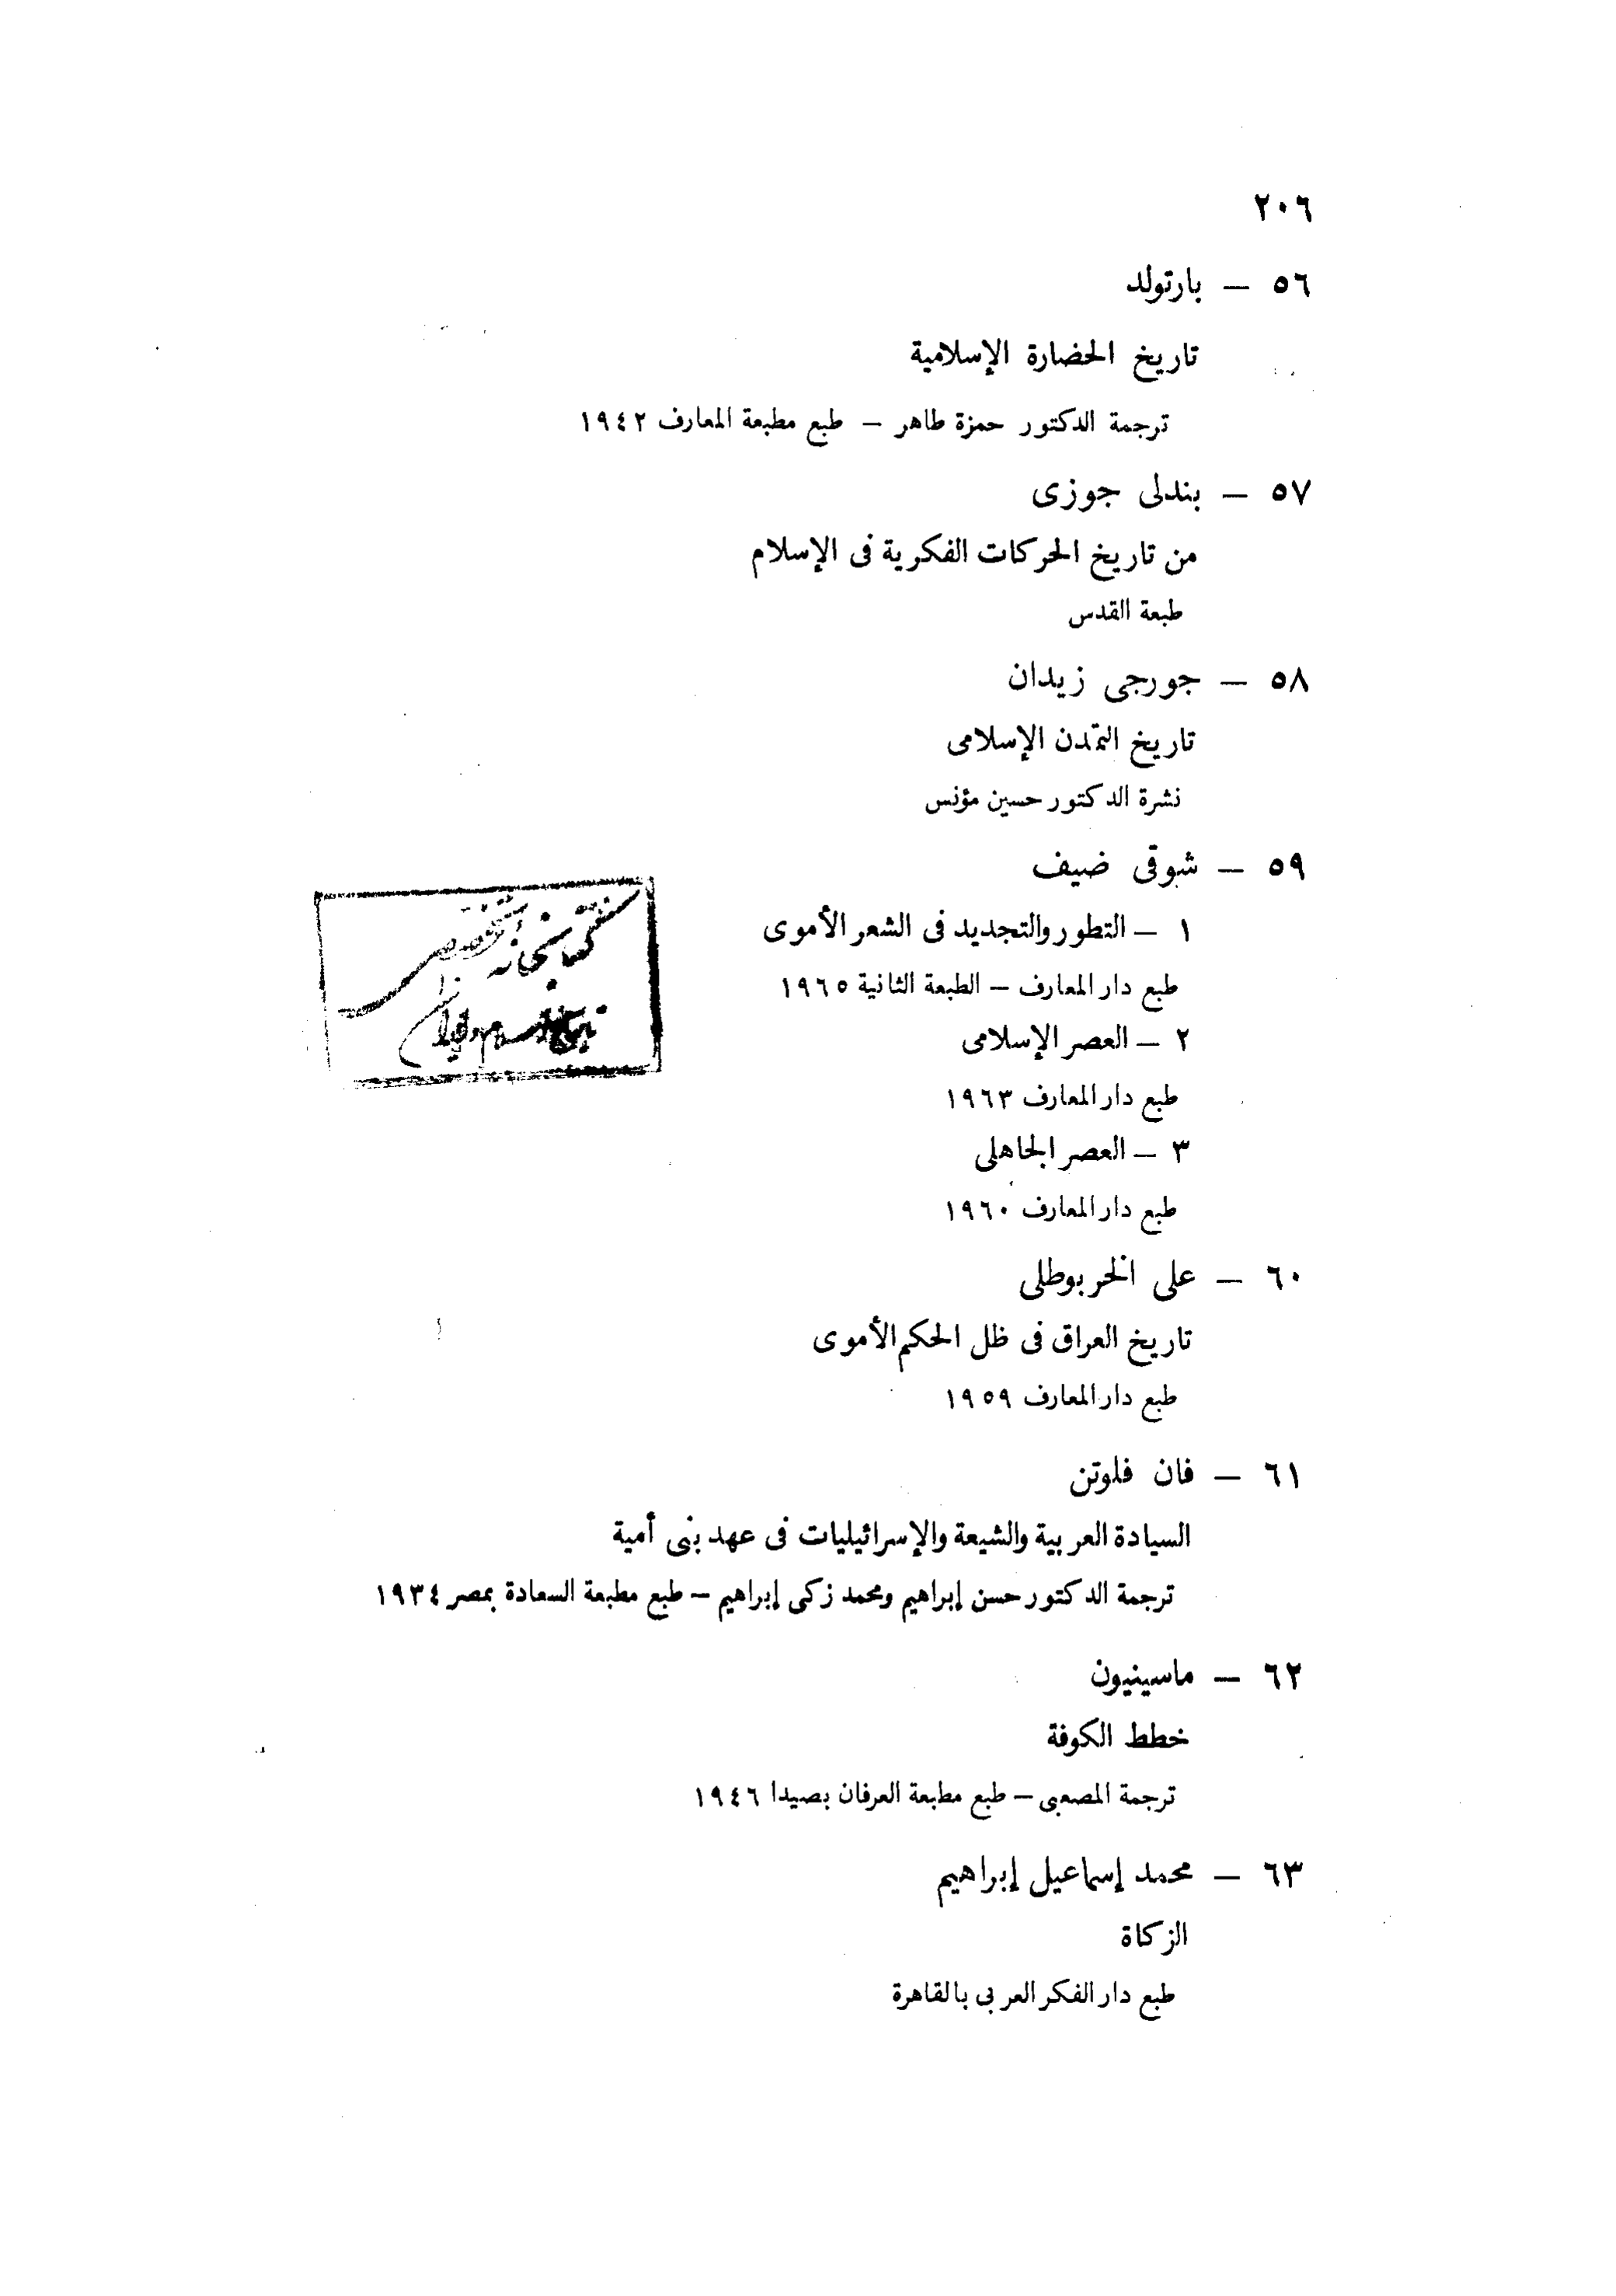 ٢٠٦
٥٦ — بارتولد
تاريخ الحضارة الإسلامية
ترجمة الدكتور حمزة طاهر — طبع مطبعة المعارف ١٩٤٢
٥٧ — بندلى جوزى
من تاريخ الحركات الفكرية فى الإسلام
طبعة القدس
٥٨ — جورجى زيدان
تاريخ التمّدن الإسلامى
نشرة الدكتور حسين مؤنس
٥٩ — شوقى ضيف
١ — التطور والتجديد فى الشعر الأموى
طبع دار المعارف — الطبعة الثانية ١٩٦٥
٢ — العصر الإسلامى
طبع دار المعارف ١٩٦٣
٣ — العصر الجاهلى
طبع دار المعارف ١٩٦٠
كتابخانه
٦٠ — على الخربوطلى
تاريخ العراق فى ظل الحكم الأموى
طبع دار المعارف ١٩٥٩
٦١ — فان فلوتن
السيادة العربية والشيعة والإسرائيليات فى عهد بنى أمية
ترجمة الدكتور حسن إبراهيم ومحمد زكى إبراهيم — طبع مطبعة السعادة بمصر ١٩٣٤
٦٢ — ماسينيون
خطط الكوفة
ترجمة المصعبى — طبع مطبعة العرفان بصيدا ١٩٤٦
٦٣ — محمد إسماعيل إبراهيم
الزكاة
طبع دار الفكر العربى بالقاهرة